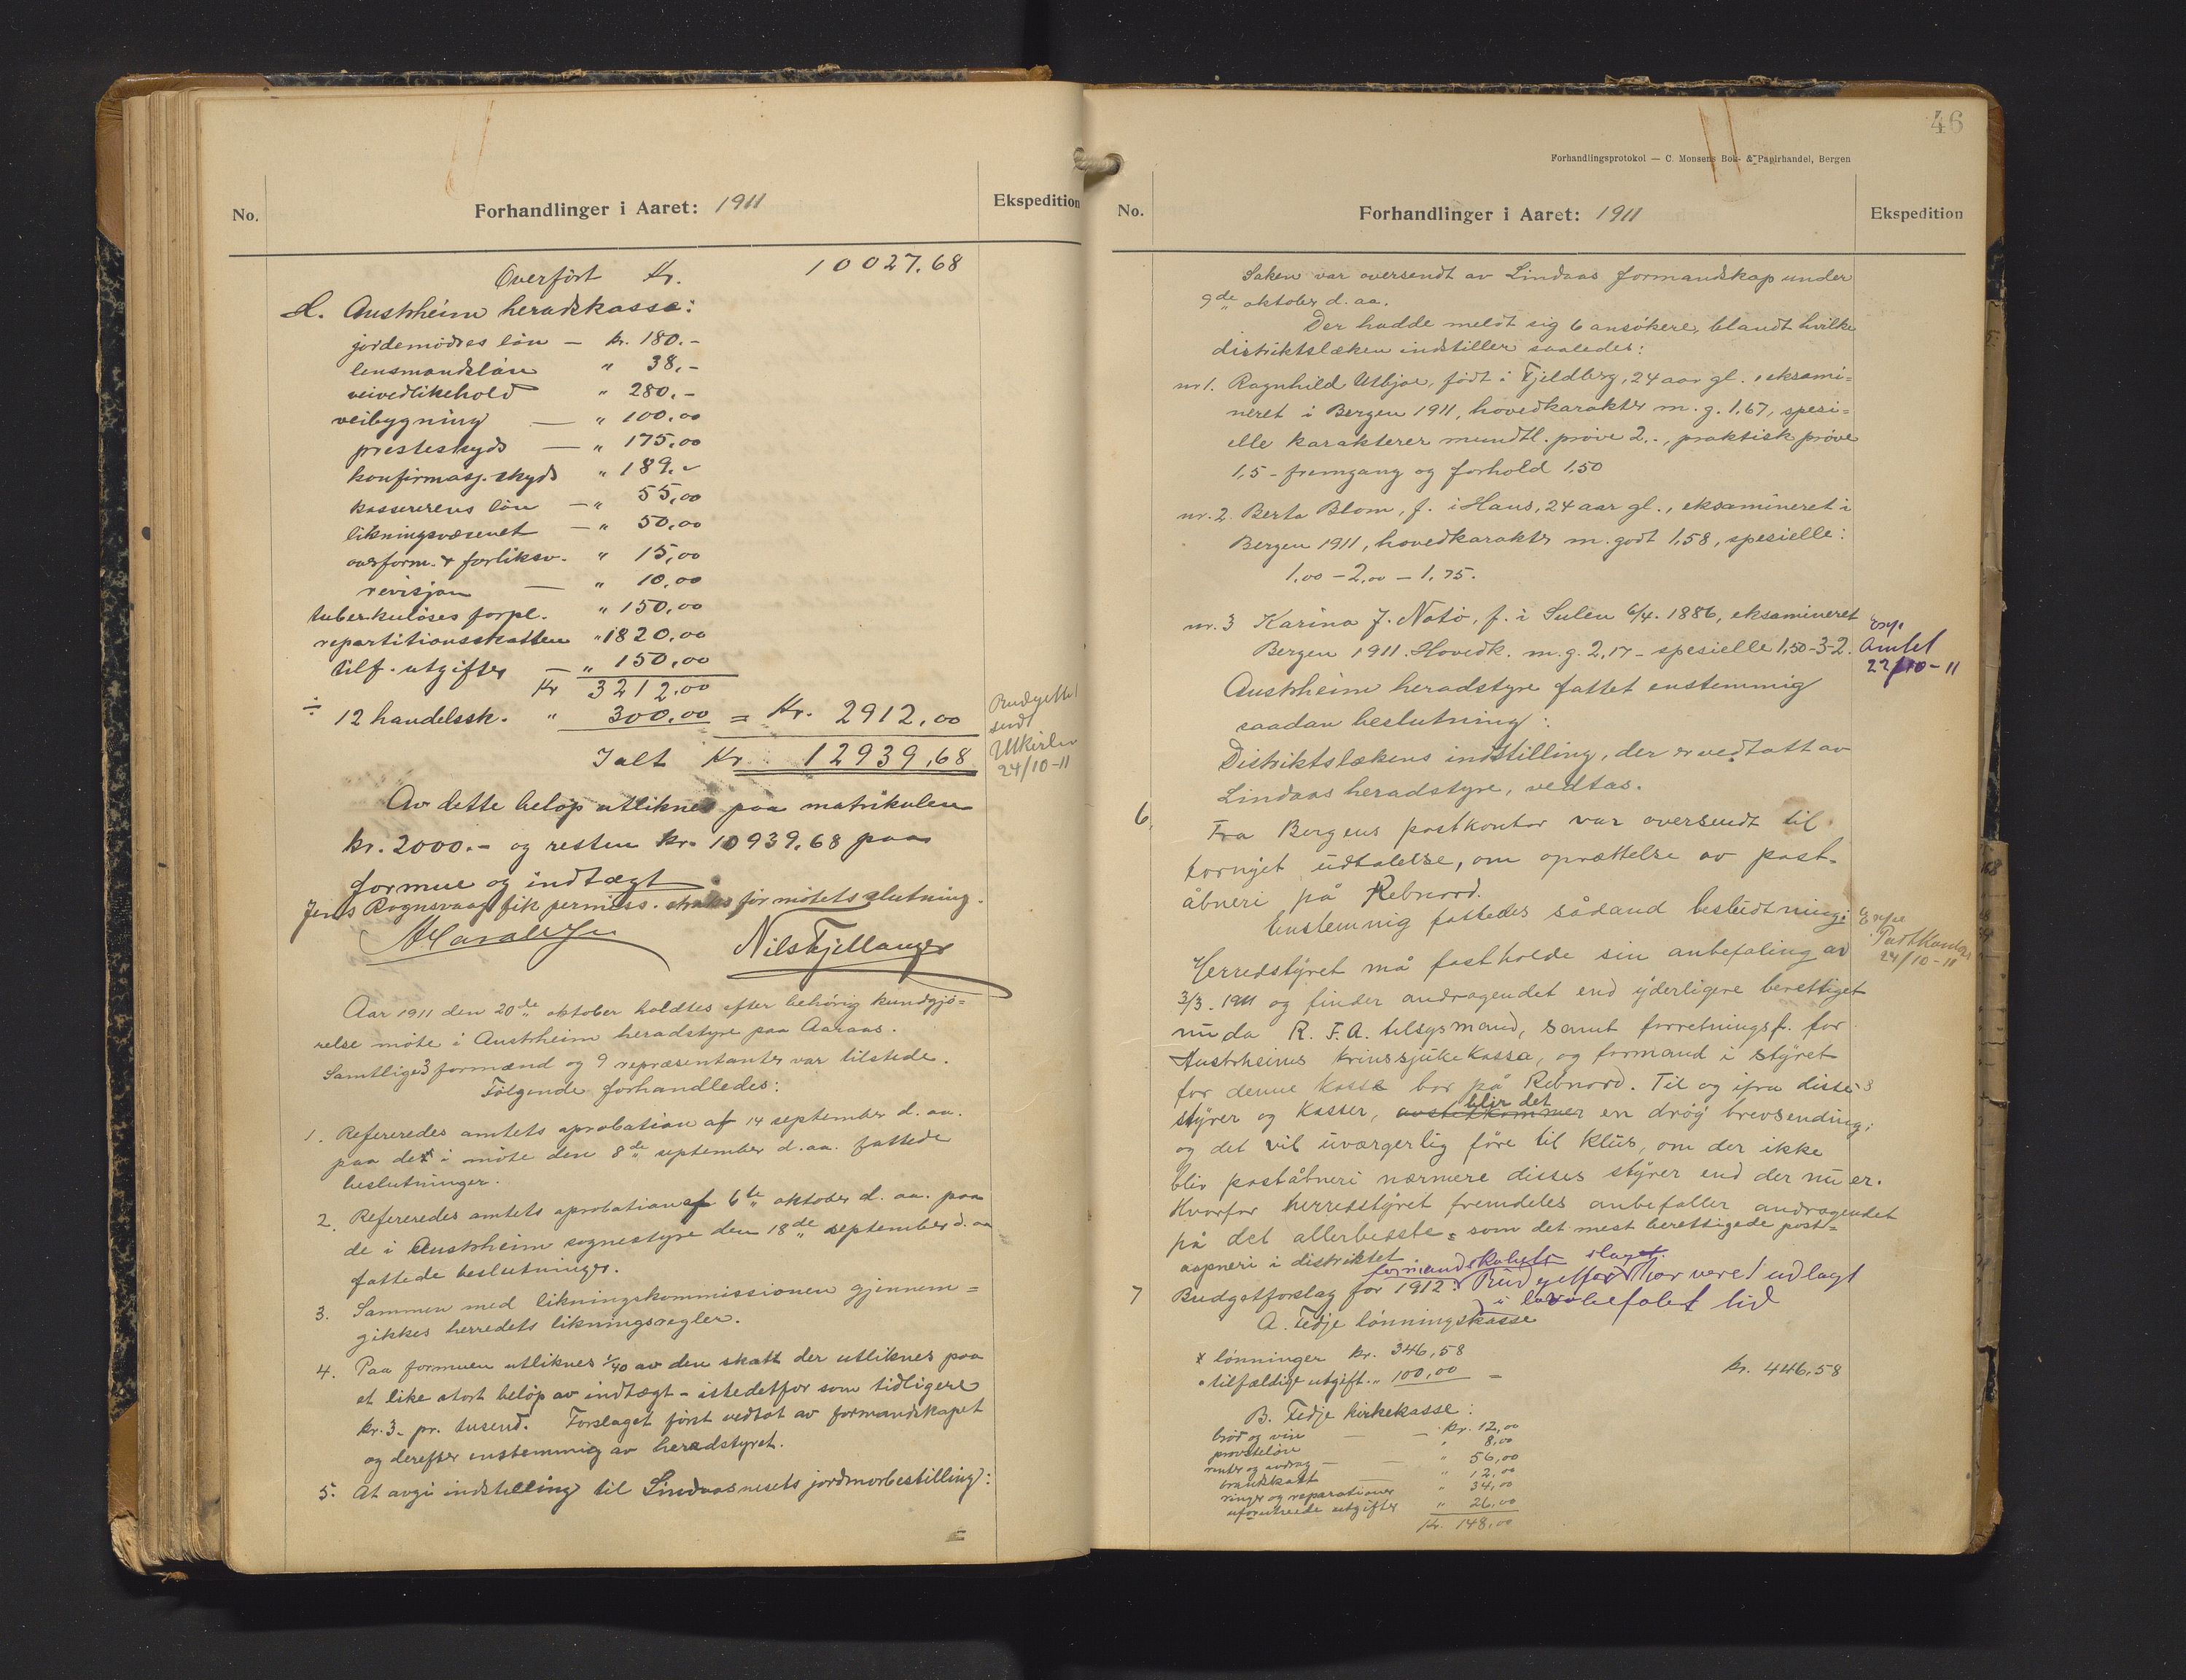 No.
Forhandlinger i Aaret: 1911
Ekspedition
Overført Kr. 10027,68
d. Austrheim heradskasse:
jordemødres løn — kr. 180.-
lensmandsløn " 38,-
veivedlikehold " 280.-
veibygning — " 100,00
presteskyds — " 175,00
konfirmasj. skyds " 189.-
kassererens løn — " 55,00
likningsvæsenet — " 50,00
overform. & forliksv. " 15,00
revisjon — " 10,00
tuberkuløses forpl. " 150,00
repartitionsskatten " 1820,00
tilf. utgifter — " 150,00
Kr 3212,00
÷ 12 handelssk. " 300,00 = Kr. 2912,00
Ialt Kr. 12939,68
Budgettet
send
24/10-11
Av dette beløp utliknes paa matrikulen
kr. 2000.- og resten kr. 10939,68 paa
formue og indtægt
Jens Rognsvaag fik permiss. straks før møtets slutning.
Nils Fjellanger
Aar 1911 den 20de oktober holdtes efter behørig kundgjø=
relse møte i Austrheim heradstyre paa Aaraas.
Samtlige 3 formænd og 9 repræsentanter var tilstede.
Følgende forhandledes:
1. Refereredes amtets aprobation af 14 september d. aa.
paa de i møte den 8de september d. aa. fattede
beslutninger.
2. Refereredes amtets aprobation af 6te oktober d. aa. paa
de i Austrheim sognestyre den 18de september d. aa
fattede beslutninger.
3. Sammen med likningskommissionen gjennem=
gikkes herredets likningsregler.
4. Paa formuen utliknes 1/40 av den skatt der utliknes paa
et like stort beløp av indtægt - istedetfor som tidligere
kr. 3- pr. tusend. Forslaget først vedtat av formandskapet
og derefter enstemmig av heradstyret.
5. At avgi indstilling til Lindaasnesets jordmorbestilling:
46
Forhandlingsprotokol — C. Monsens Bok- & Papirhandel, Bergen
No.
Forhandlinger i Aaret: 1911
Ekspedition
Saken var oversendt av Lindaas formandskap under
9de oktober d. aa.
Der hadde meldt sig 6 ansøkere, blandt hvilke
distriktslæken indstiller saaledes:
nr 1. Ragnhild Utbjoe, født i Fjeldberg, 24 aar gl., eksami=
neret i Bergen 1911, hovedkarakter m. g. 1,67, spesi=
elle karakterer mundtl. prøve 2.-, praktisk prøve
1,5 - fremgang og forhold 1,50
nr. 2. Berta Blom, f. i Haus, 24 aar gl., eksamineret i
Bergen 1911, hovedkarakter m. godt 1,58, spesielle:
1,00 - 2,00 - 1,75.
nr. 3 Karina J. Notø, f. i Sulen 6/4. 1886, eksamineret
Bergen 1911. Hovedk. m. g. 2,17 - spesielle 1,50-3-2.
Exp.
Amtet
22/10-11
Austrheim heradstyre fattet enstemmig
saadan beslutning:
Distriktslækens indstilling, der er vedtatt av
Lindaas heradstyre, vedtas.
6. Fra Bergens postkontor var oversendt til
fornyet udtalelse, om oprættelse av post-
åbneri på Rebnord.
Enstemmig fattedes sådand besludtning:
Expe
Postkontor
24/10-11
Herredstyret må fastholde sin anbefaling av
3/3. 1911 og finder andragendet end yderligere berettiget
nu da R. F. A. tilsynsmand, samt forretningsf. for
Austrheims krinssjukekassa, og formand i styret
for denne kasse bor på Rebnord. Til og ifra disse
styrer og kasser, avstedkommer blir det en drøg brevsending;
og det vil uværgerlig føre til kluss, om der ikke
bliv poståbneri nærmere disses styrer end der nu er.
Hvorfor herredstyret fremdeles anbefaller andragendet
på det allerbedste = som det mest berettigede post=
aapneri i distriktet.
7 Budgetforslag for 1912. formandskabets Budgetforslaget har været udlagt
i lovbefalet tid
A. Fedje lønningskasse
* lønninger kr. 346,58
* tilfældige utgift. " 100,00 = kr. 446,58
B. Fedje kirkekasse:
brød og vin — kr. 12,00
provsteløn " 8,00
renter og avdrag — " 56,00
brandskatt " 12,00
ringer og reparationer " 34,00
uforutseede utgifter " 26,00
Kr. 148,00